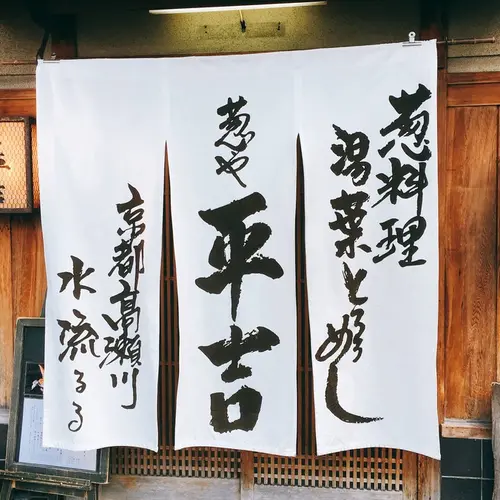 葱料理
湯葉とろめし
葱や
平吉
京都高瀬川
水流るる